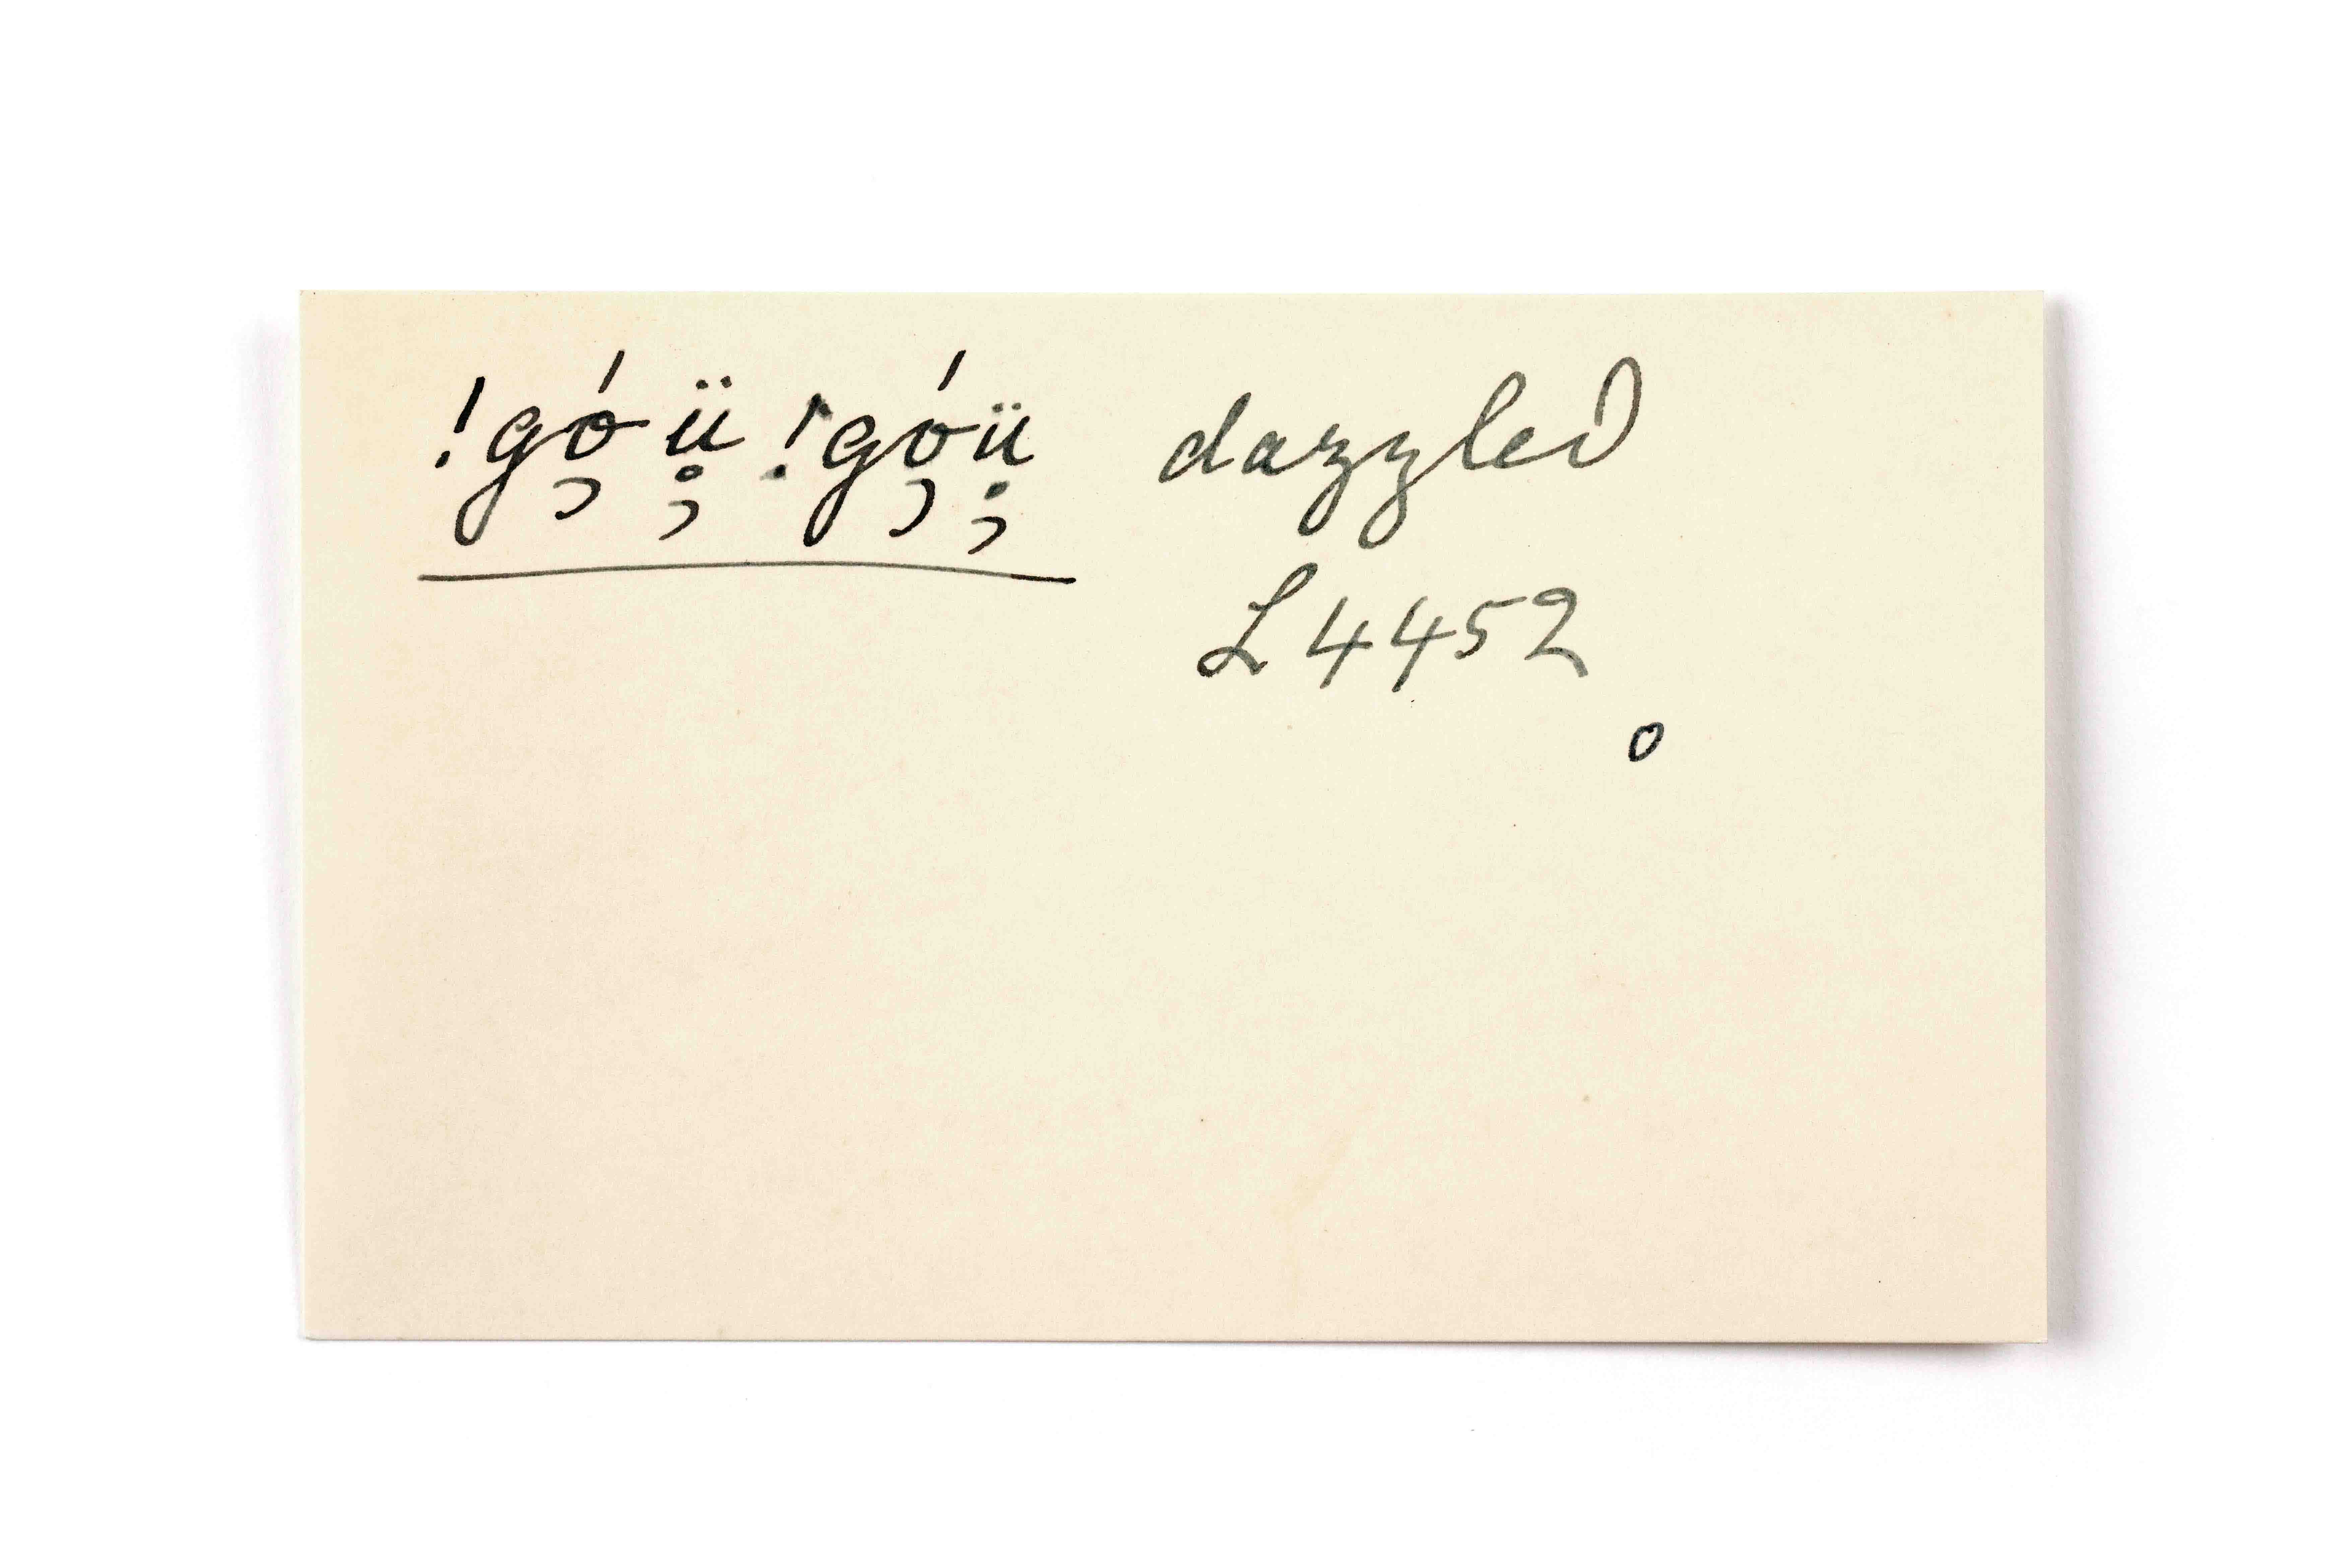 !gó̦ü̥̦ !gó̦ü̥̦ dazzled
L 4452
o